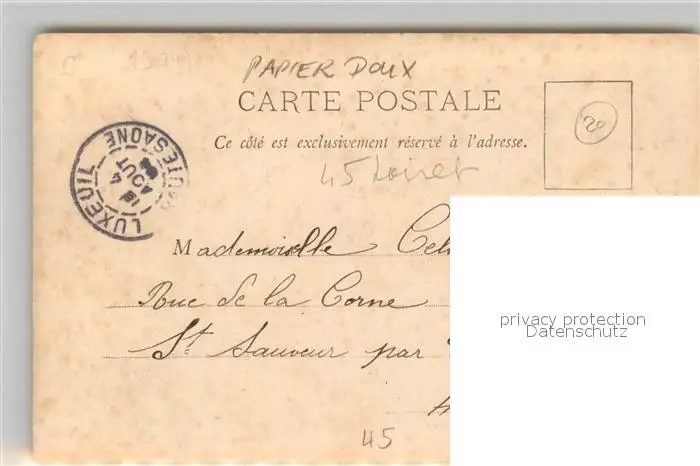 PAPIER DOUX
CARTE POSTALE
20
Ce côté est exclusivement réservé à l'adresse.
45 Loiret
LUXEUIL
HTE SAONE
4
AOUT
Mademoiselle
Rue de la Corne
St Sauveur par
45
privacy protection
Datenschutz